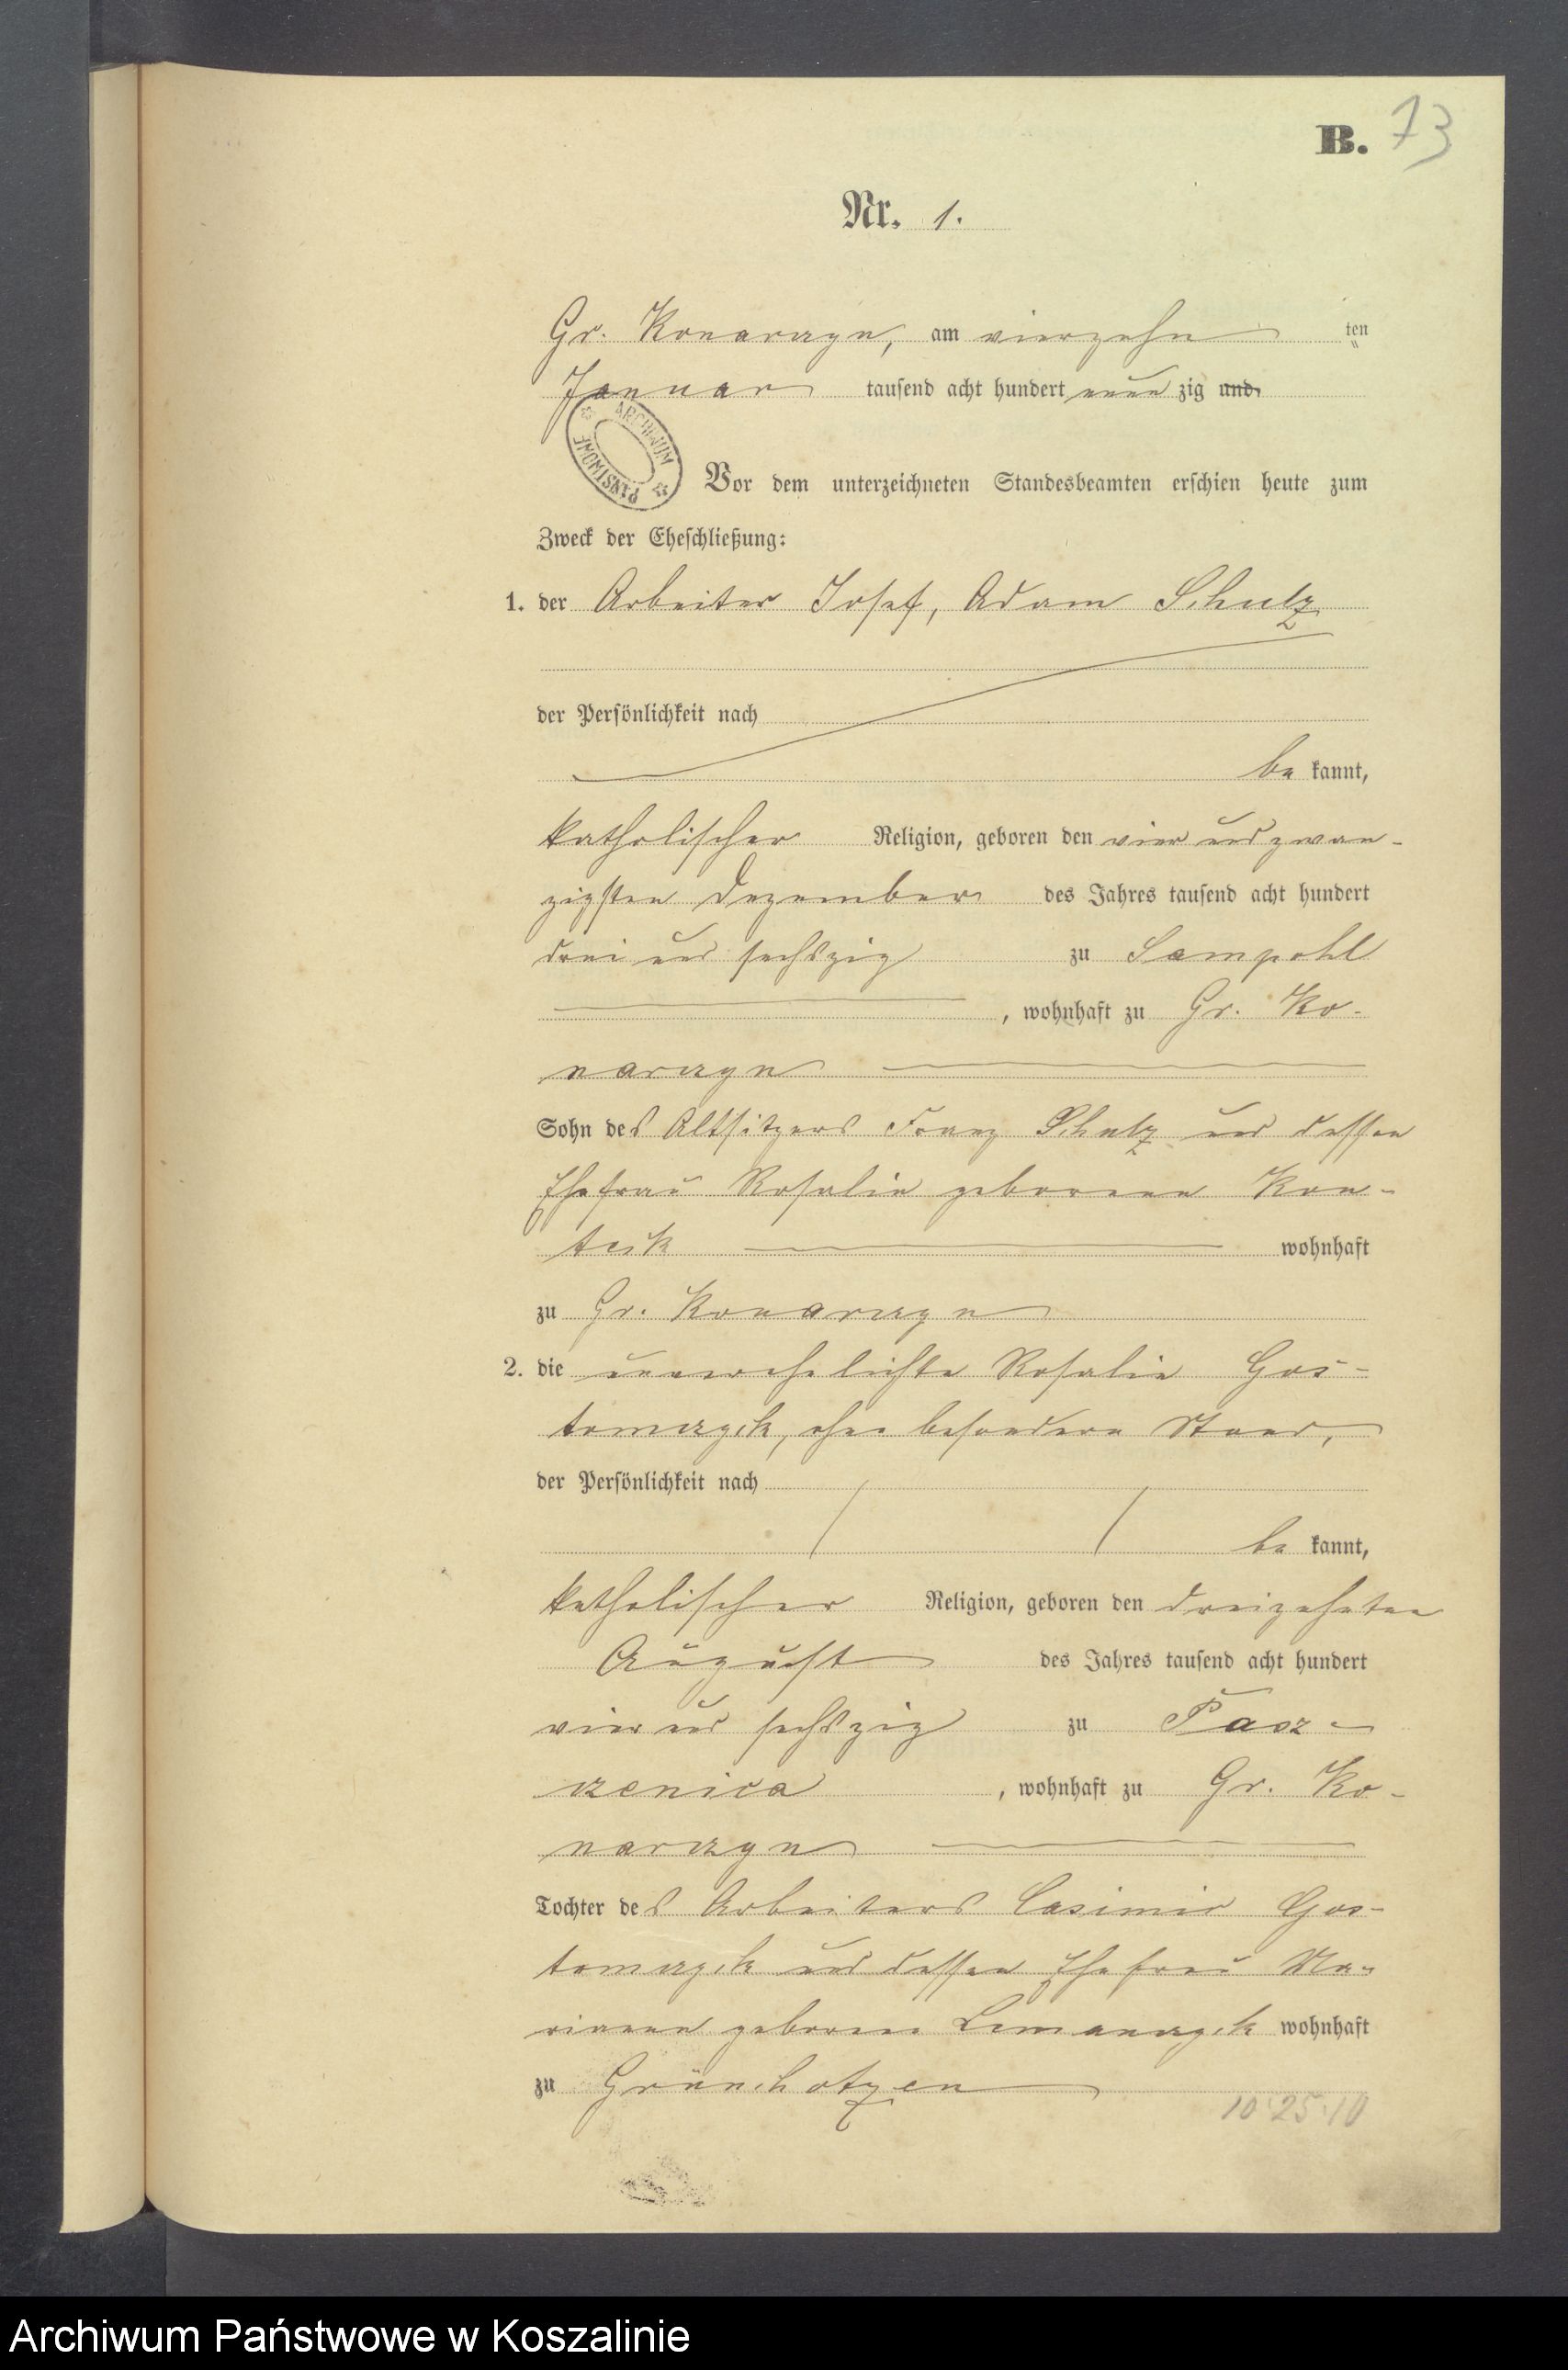 B. 73
Nr. 1.
Gr. Konarczyn, am vierzehn ten
Januar tausend acht hundert neunzig und
ARCHIWUM PAŃSTWOWE
Vor dem unterzeichneten Standesbeamten erschien heute zum
Zweck der Eheschließung:
1. der Arbeiter Josef, Adam Schulz
der Persönlichkeit nach
be kannt,
katholischer Religion, geboren den vier und zwan-
zigsten Dezember des Jahres tausend acht hundert
drei und sechszig zu Sampohl
, wohnhaft zu Gr. Ko-
narczyn
Sohn des Altsitzers Franz Schulz und dessen
Ehefrau Rosalie geborene Kon-
wohnhaft
zu Gr. Konarczyn
2. die unverehelichte Rosalie Gos-
tomczyk, ohne besondern Stand,
der Persönlichkeit nach
be kannt,
katholischer Religion, geboren den dreizehnten
August des Jahres tausend acht hundert
vier und sechszig zu Pasz-
czenica, wohnhaft zu Gr. Ko-
narczyn
Tochter des Arbeiters Casimir Gos-
tomczyk und dessen Ehefrau Ma-
rianna geborene Lemanczyk wohnhaft
zu Grünchotzen
10 25 10
Archiwum Państwowe w Koszalinie